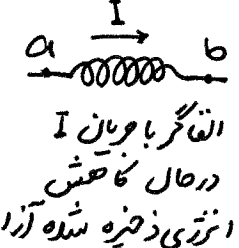 I
a b
القاگر با جریان I
درحال کاهش
انرژی ذخیره شده آزاد